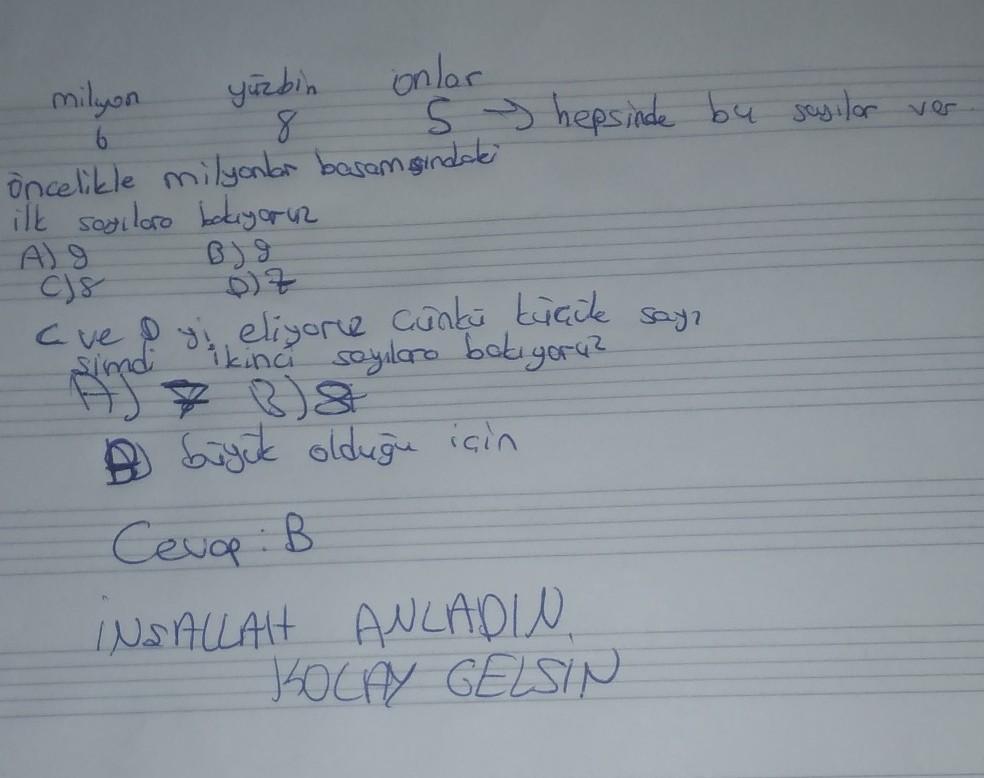 milyon yüzbin onlar
6 8 5 → hepsinde bu sayılar var
öncelikle milyonlar basamğındaki
ilk sayılara bakıyoruz
A) 9 B) 9
C) 8 D) 7
C ve D yi eliyoruz Cünkü küçük sayı
şimdi ikinci sayılara bakıyoruz
A) 7 B) 8
büyük olduğu için
Cevap : B
İNSALLAH ANLADIN.
KOLAY GELSİN